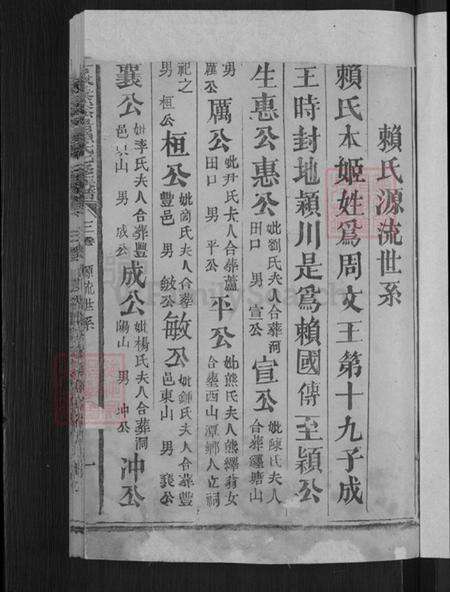 賴氏源流世系
賴氏本姬姓爲周文王第十九子成
王時封地潁川是爲賴國傳至潁公
生惠公惠公妣劉氏夫人合葬河田口 男 宣公宣公妣陳氏夫人合葬鯉塘山
男 厲公厲公妣尹氏夫人合葬蘆田口 男 平公平公妣熊氏夫人熊繹翁女合葬西山潭鄉人立祠
祀之 男 桓公桓公妣 氏夫人合葬豐邑 男 敏公敏公妣鍾氏夫人合葬豐邑東山 男 襄公
襄公妣李氏夫人合葬豐邑 山 男 成公成公妣楊氏夫人合葬洞陽山 男 冲公冲公
三 源流世系
一